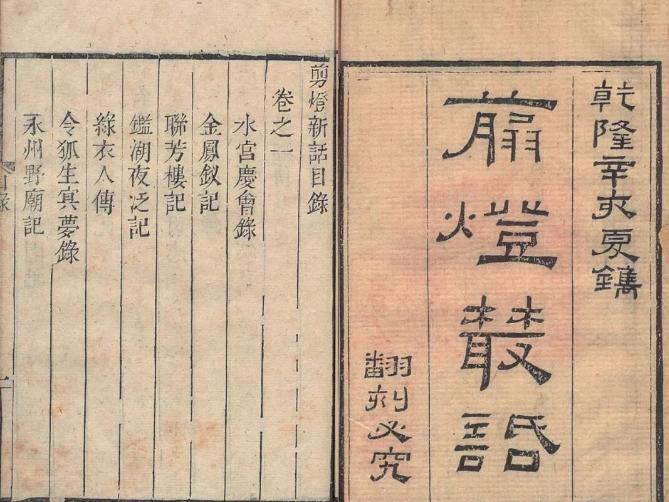 乾隆辛亥夏鐫
翦燈叢話
翻刻必究
剪燈新話目錄
卷之一
水宮慶會錄
金鳳釵記
聯芳樓記
鑑湖夜泛記
綠衣人傳
令狐生冥夢錄
永州野廟記
目錄